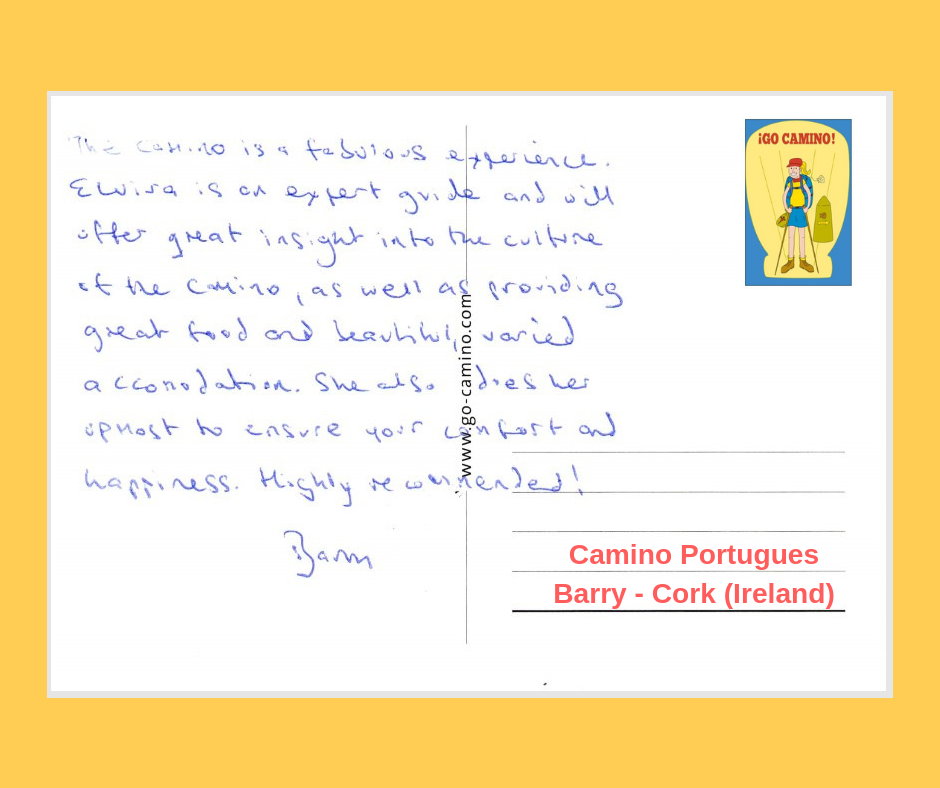 The Camino is a fabulous experience.
Elvira is an expert guide and will
offer great insight into the culture
of the Camino, as well as providing
great food and beautiful, varied
accomodation. She also does her
upmost to ensure your comfort and
happiness. Highly recommended!
Barry
www.go-camino.com
¡GO CAMINO!
Camino Portugues
Barry - Cork (Ireland)